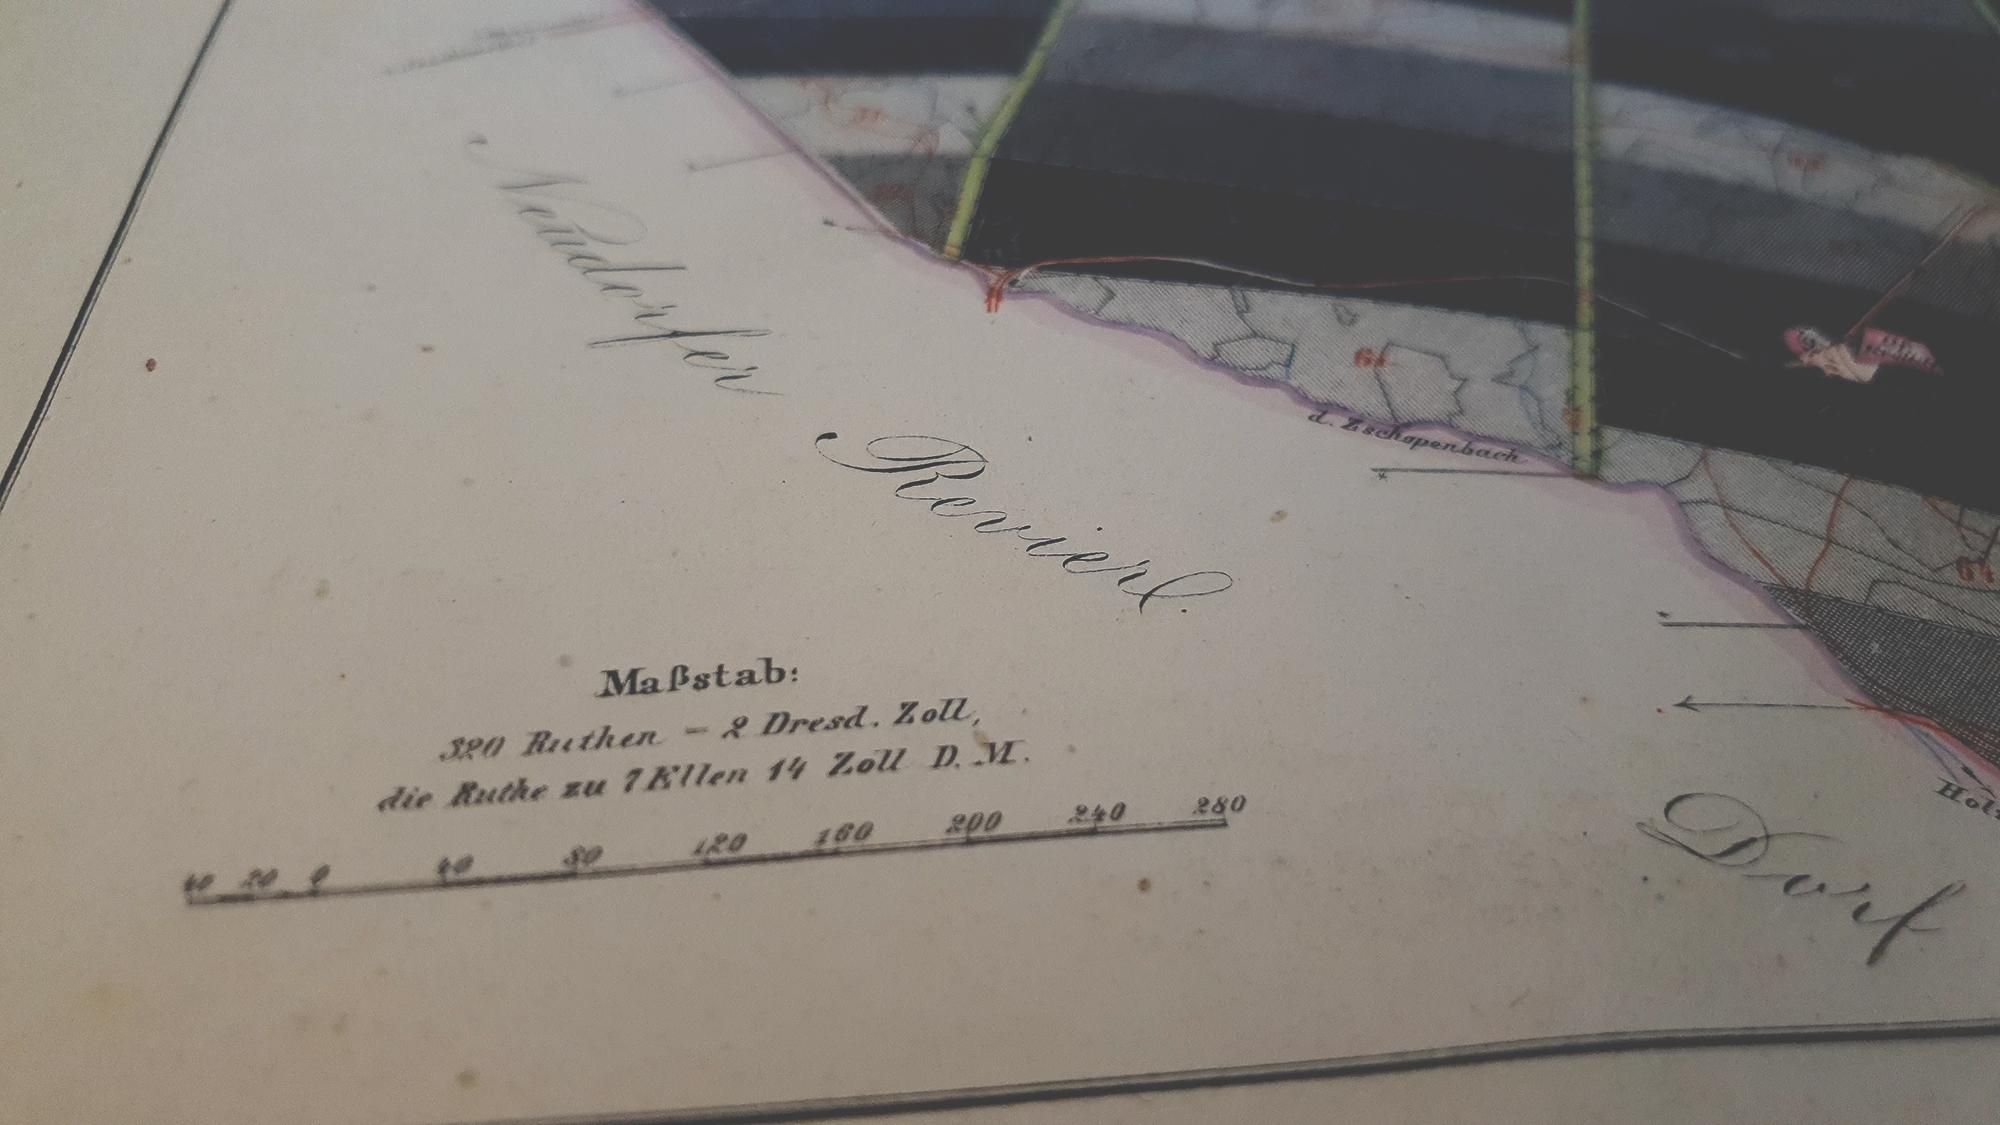 Neudorfer
Revierl.
61
d. Zschopenbach
64
Maßstab:
320 Ruthen – 2 Dresd. Zoll,
die Ruthe zu 7 Ellen 14 Zoll D. M.
40 20 0 40 80 120 160 200 240 280
Dorf